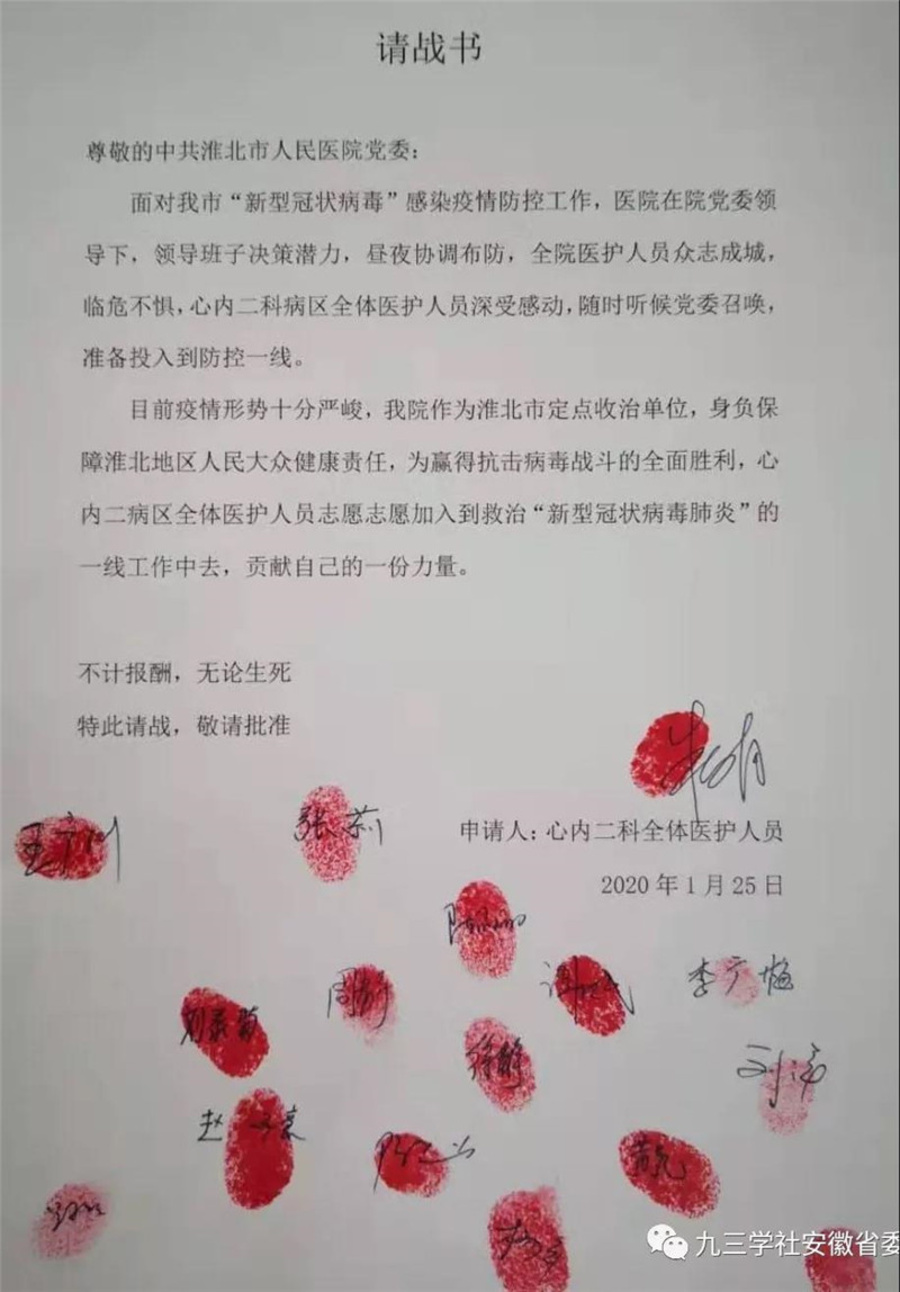 请战书
尊敬的中共淮北市人民医院党委：
面对我市“新型冠状病毒”感染疫情防控工作，医院在院党委领
导下，领导班子决策潜力，昼夜协调布防，全院医护人员众志成城，
临危不惧，心内二科病区全体医护人员深受感动，随时听候党委召唤，
准备投入到防控一线。
目前疫情形势十分严峻，我院作为淮北市定点收治单位，身负保
障淮北地区人民大众健康责任，为赢得抗击病毒战斗的全面胜利，心
内二病区全体医护人员志愿志愿加入到救治“新型冠状病毒肺炎”的
一线工作中去，贡献自己的一份力量。
不计报酬，无论生死
特此请战，敬请批准
张莉
申请人：心内二科全体医护人员
2020年1月25日
李广梅
九三学社安徽省委